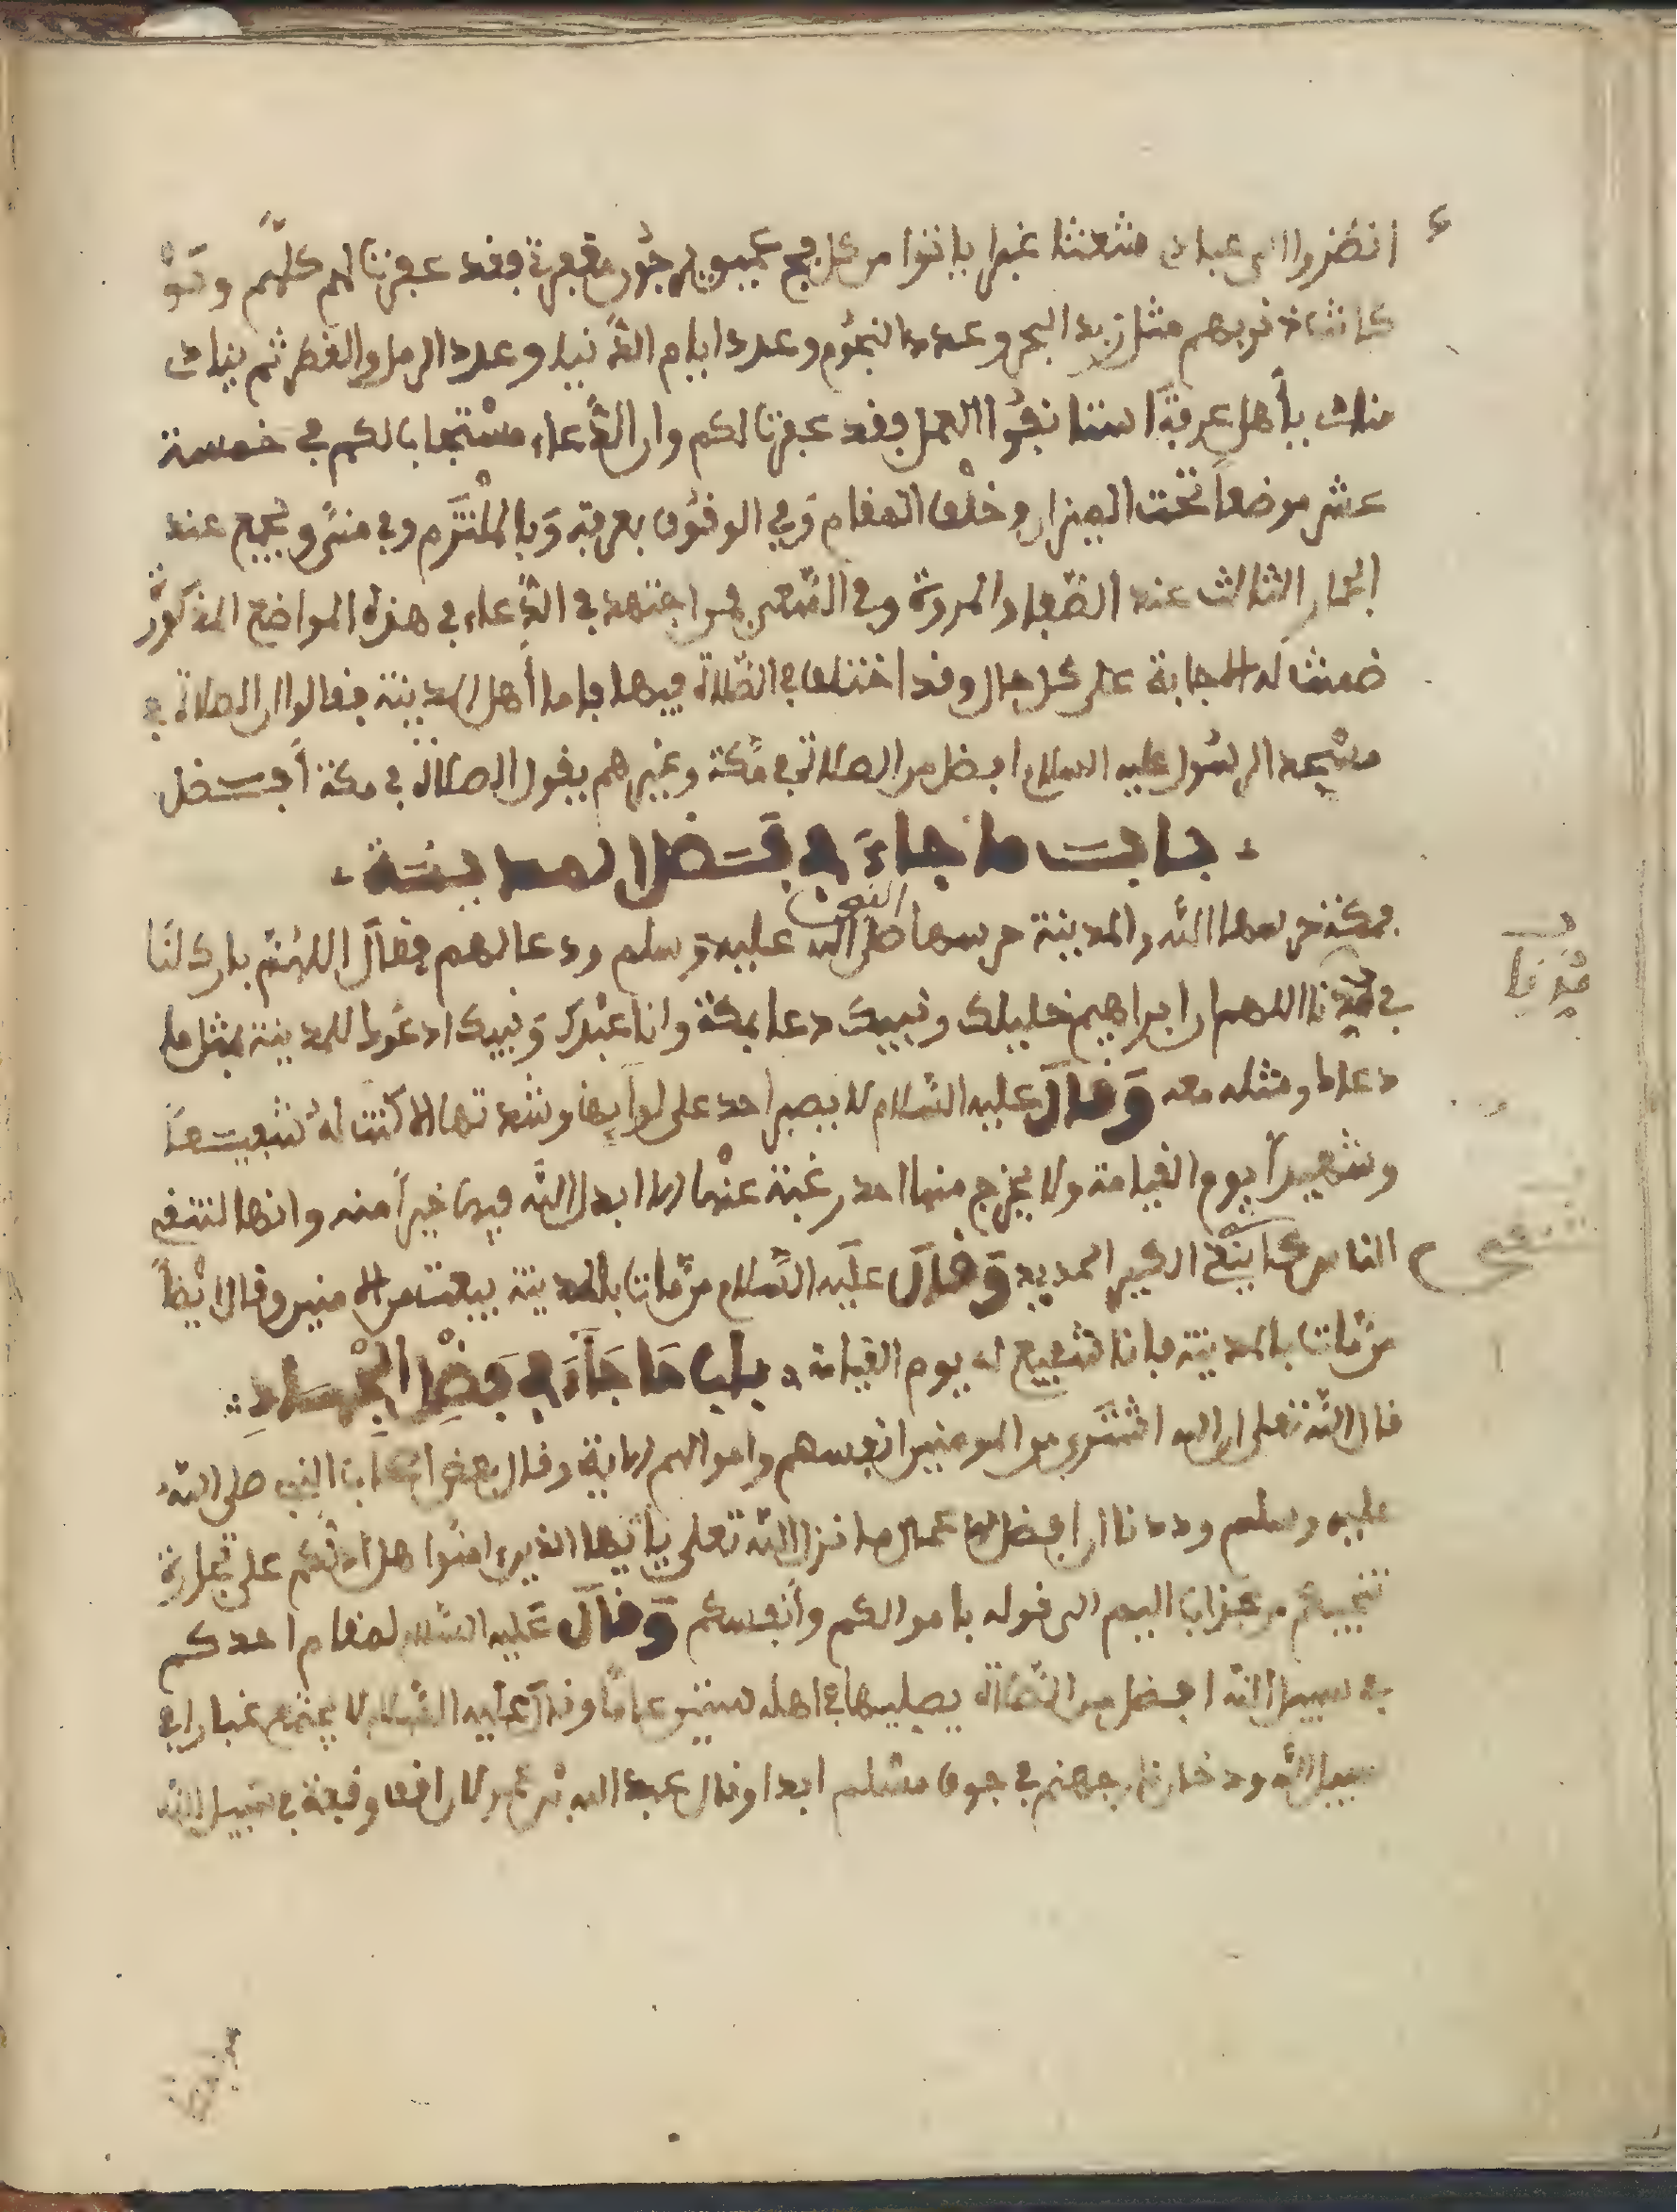 انضروا الى عبادي شعثا غبرا ياتوا من كل فج عميق يرجون مغفرة فقد غفرت لهم كلهم ولو
كانت ذنوبهم مثل زبد البحر وعدد النجوم وعدد ايام الدنيا وعدد الرمل والقطر ثم ينادي
مناد يأهل عرفة استانفوا العمل فقد غفرت لكم وان الدعاء مستجاب لكم في خمسة
عشر موضعا تحت الميزاب وخلف المقام وفي الوقوف بعرفة وبالملتزم وفي منى وبجمع عند
الجمار الثالث عند الصفا والمروة وفي السعي فمن اجتهد في الدعاء في هذه المواضع المذكورة
ضمنت له الاجابة على كل حال وقد اختلف في الصلاة فيها فاما أهل المدينة فقالوا ان الصلاة في
مسجد الرسول عليه السلام افضل من الصلاة في مكة وغيرهم يقول الصلاة في مكة أفضل
باب ما جاء في فضل المدينة
فمكة حرمها الله والمدينة حرمها النبي صلى الله عليه وسلم ودعا لهم فقال اللهم بارك لنا
في مدنا اللهم ان ابراهيم خليلك ونبيك دعا بمكة وانا عبدك ونبيك ادعوك للمدينة بمثل ما
مدنا
دعاك ومثله معه وقال عليه السلام لا يصبر احد على لوايها وشدتها الا كنت له شفيعا
وشهيدا يوم القيامة ولا يخرج منها احد رغبة عنها الا ابدل الله فيها خيرا منه وانها لتنفي
الناس كما ينفي الكير الحديد وقال عليه السلام من مات بالمدينة يبعث من الامنين وقال ايضا
من مات بالمدينة فانا شفيع له يوم القيامة باب ما جاء في فضل الجهاد
قال الله تعلى ان الله اشترى من المومنين انفسهم واموالهم الاية وقال بعض اصحاب النبي صلى الله
عليه وسلم وددنا ان افضل الاعمال ما نزل الله تعلى يايها الذين امنوا هل ادلكم على تجارة
تنجيكم من عذاب اليم الى قوله باموالكم وأنفسكم وقال عليه السلام لمقام احدكم
في سبيل الله افضل من الصلاة يصليها في اهله ستين عاما وقال عليه السلام لا يجتمع غبار في
سبيل الله ودخان نار جهنم في جوف مسلم ابدا وقال عبد الله بن عمر لان اقف وقفة في سبيل الله